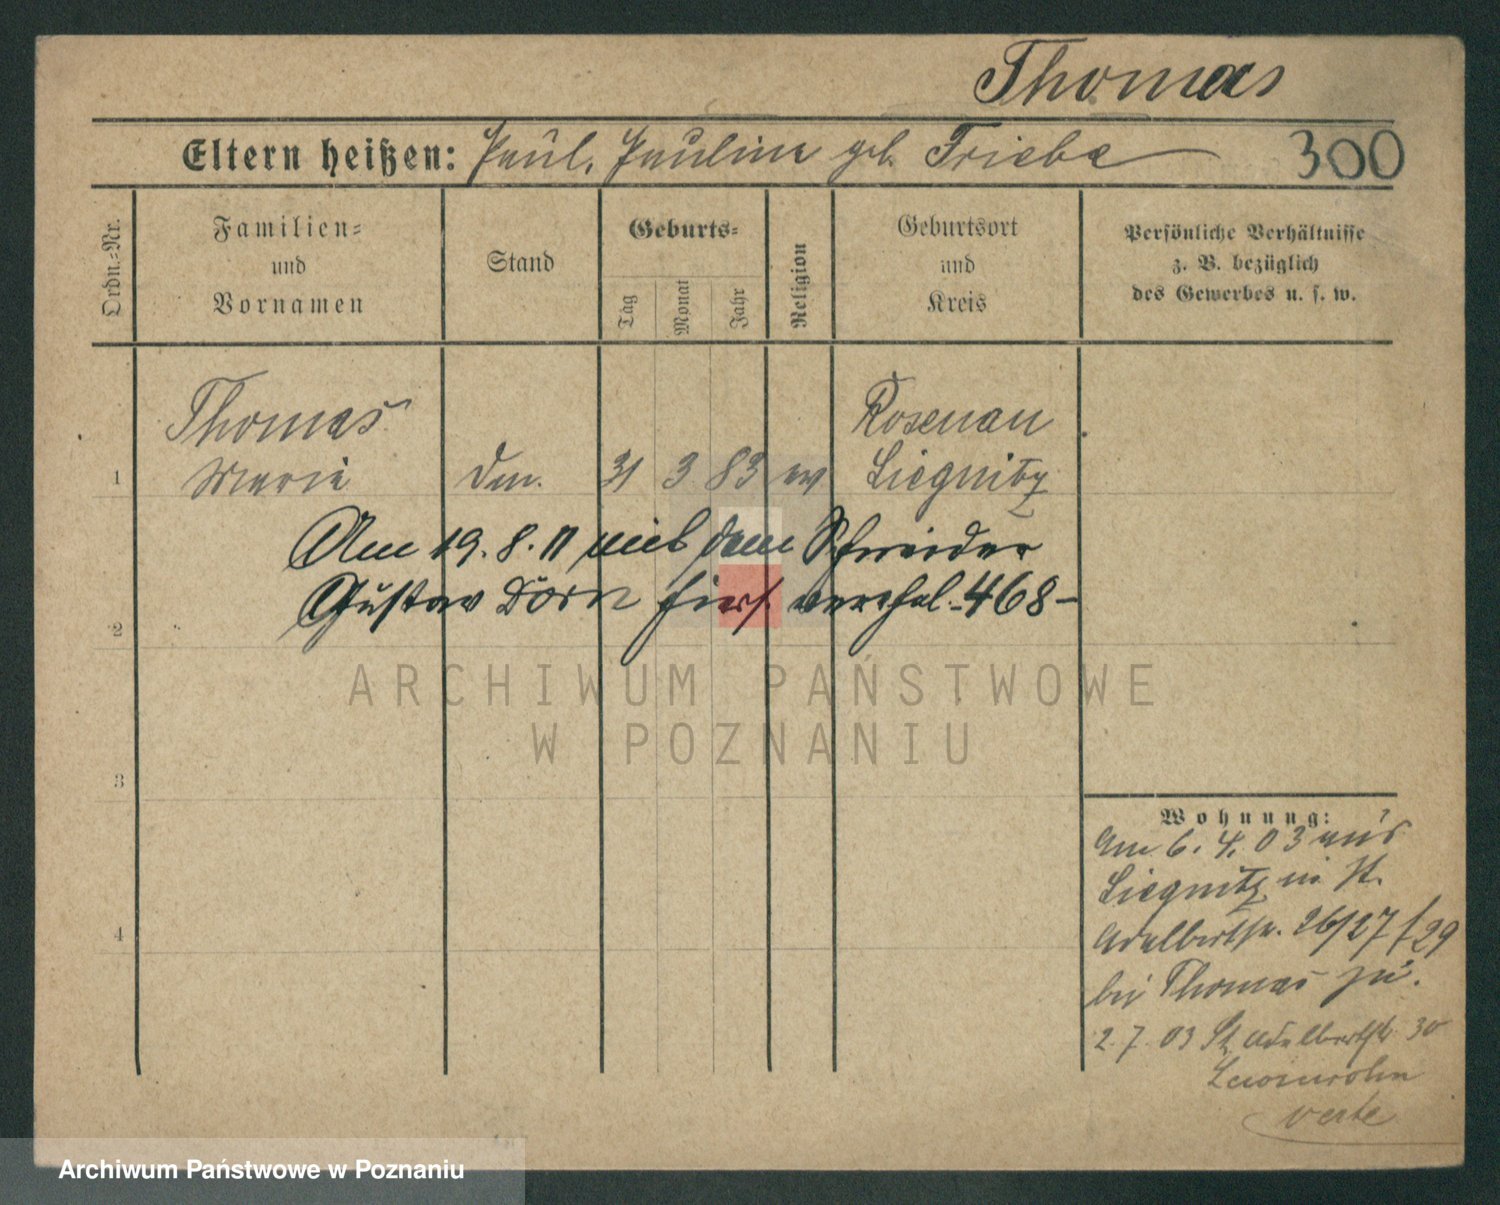 Thomas
Eltern heißen: Paul, Pauline geb. Friebe
300
Ordn.-Nr.
Familien-
und
Vornamen
Stand
Geburts-
Tag
Monat
Jahr
Religion
Geburtsort
und
Kreis
Persönliche Verhältnisse
z. B. bezüglich
des Gewerbes u. s. w.
Thomas
Rosenau
1 Marie 31 3 83 ev Liegnitz
Am 19.8.11 mit dem Schneider
Gustav Dorn hiers. verehel. -468-
2
ARCHIWUM PAŃSTWOWE
W POZNANIU
3
4
Wohnung:
Am 6. 4. 03 aus
Liegnitz in St.
Adalbertstr. 26/27 / 29
bei Thomas zu.
2. 7. 03 St. Adalbertstr 30
verte
Archiwum Państwowe w Poznaniu